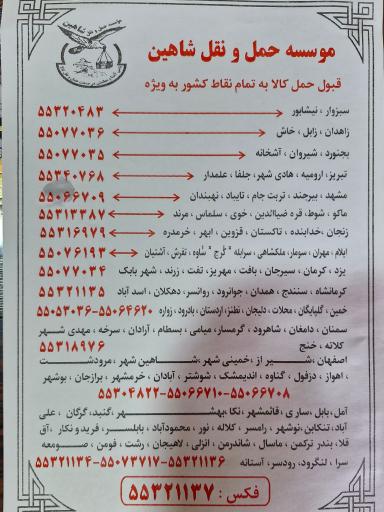 موسسه حمل و نقل شاهین
قبول حمل کالا به تمام نقاط کشور به ویژه
سبزوار ، نیشابور ۵۵۳۲۰۴۸۳
زاهدان ، زابل ، خاش ۵۵۰۷۷۰۳۶
بجنورد ، شیروان ، آشخانه ۵۵۰۷۷۰۳۵
تبریز ، ارومیه ، هادی شهر، جلفا ، علمدار ۵۵۳۴۰۷۶۸
مشهد ، بیرجند ، تربت جام ، تایباد ، نهبندان ۵۵۰۶۶۷۰۹
ماکو ، شوط، قره ضیاالدین ، خوی ، سلماس ، مرند ۵۵۳۱۳۳۸۷
زنجان ، خدابنده ، تاکستان ، قزوین ، ابهر ، خرمدره ۵۵۳۱۶۹۷۹
ایلام ، مهران ، سومار، ملکشاهی ، سرابله * کرج * ساوه ، تفرش ، آشتیان ۵۵۰۷۶۱۹۳
یزد ، کرمان ، سیرجان ، بافت ، مهریز، تفت ، زرند ، شهر بابک ۵۵۰۷۷۰۳۴
کرمانشاه ، سنندج ، همدان ، جوانرود ، روانسر، دهکلان ، اسد آباد ۵۵۳۲۱۱۳۵
خمین ، گلپایگان ، محلات ، دلیجان ، نطنز، اردستان ، بادرود ، زواره ۵۵۰۶۴۶۲۰-۵۵۰۵۳۰۳۶
سمنان ، دامغان ، شاهرود ، گرمسار، میامی ، بسطام ، آرادان ، سرخه ، مهدی شهر
کلاته ، خنج ۵۵۳۱۸۹۷۶
اصفهان ، شیراز ، خمینی شهر ، شاهین شهر ، مرودشت
، اهواز ، دزفول ، گناوه ، اندیمشک ، شوشتر ، آبادان ، خرمشهر ، برازجان ، بوشهر
۵۵۳۰۴۸۲۲-۵۵۰۶۶۷۱۰-۵۵۰۶۶۷۰۸
آمل، بابل ، ساری ، قائمشهر ، نکا ، بهشهر ، گنبد، گرگان ، علی
آباد ، تنکابن، نوشهر ، رامسر ، کلاله ، نور ، محمودآباد ، بابلسر ، فریدونکار ، آق
قلا ، بندر ترکمن ، ماسال ، شاندرمن ، انزلی ، لاهیجان ، رشت ، فومن ، صومعه
سرا ، لنگرود، رودسر، آستانه ۵۵۳۲۱۱۳۴-۵۵۰۷۳۷۱۷-۵۵۳۲۱۱۳۶
فکس : ۵۵۳۲۱۱۳۷